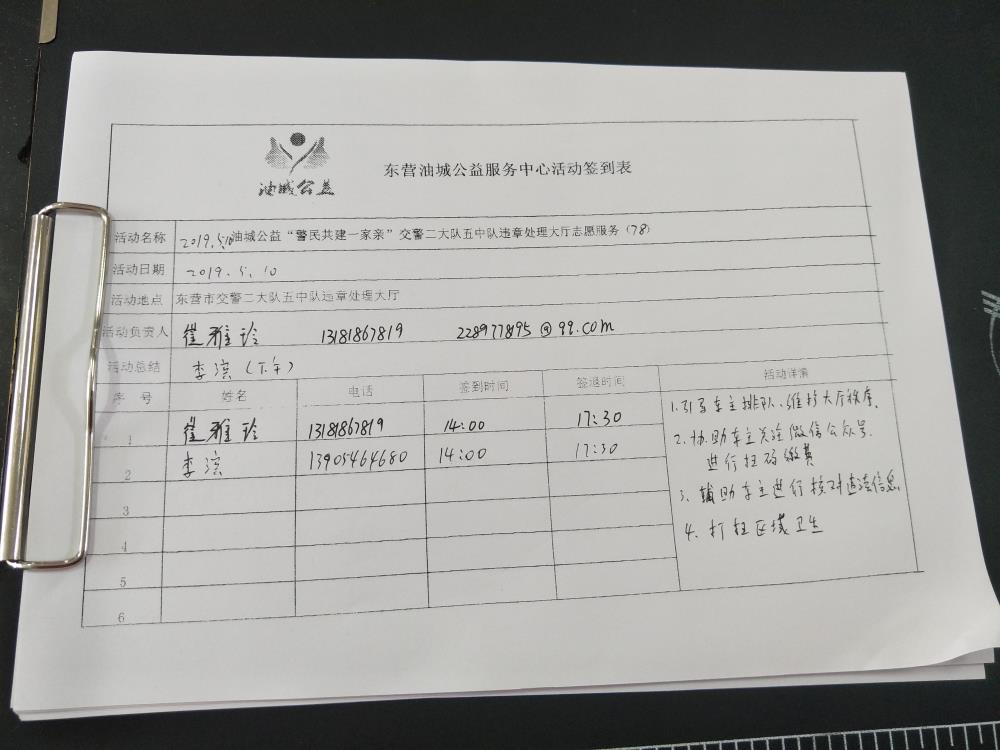 油城公益
东营油城公益服务中心活动签到表
活动名称 2019.5.10油城公益“警民共建一家亲”交警二大队五中队违章处理大厅志愿服务（78）
活动日期 2019.5.10
活动地点 东营市交警二大队五中队违章处理大厅
活动负责人 崔雅玲 13181867819 228977895@qq.com
活动总结 李滨（下午）
序 号 姓名 电话 签到时间 签退时间 活动详情
1 崔雅玲 13181867819 14:00 17:30
2 李滨 13905464680 14:00 17:30
3
4
5
6
1.引导车主排队、维持大厅秩序.
2.协助车主关注微信公众号.
进行扫码缴费
3.辅助车主进行核对违法信息.
4.打扫区域卫生